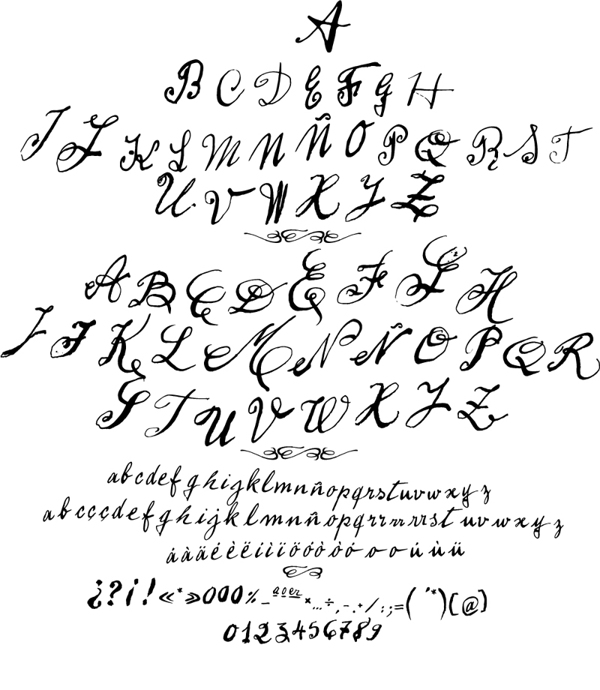 A
B C D E F G H
I J K L M N Ñ O P Q R S T
U V W X Y Z
A B C D E F G H
I J K L M N Ñ O P Q R
S T U V W X Y Z
abcdefghijklmnñopqrstuvwxyz
abcççdefghijklmnñopqrrrrrrst uvwxyz
áàäéèëíìïöóòôóo o o úùü
¿?¡!«*»000%_aoer*...÷,-.·/:;=("*)[@]
0123456789